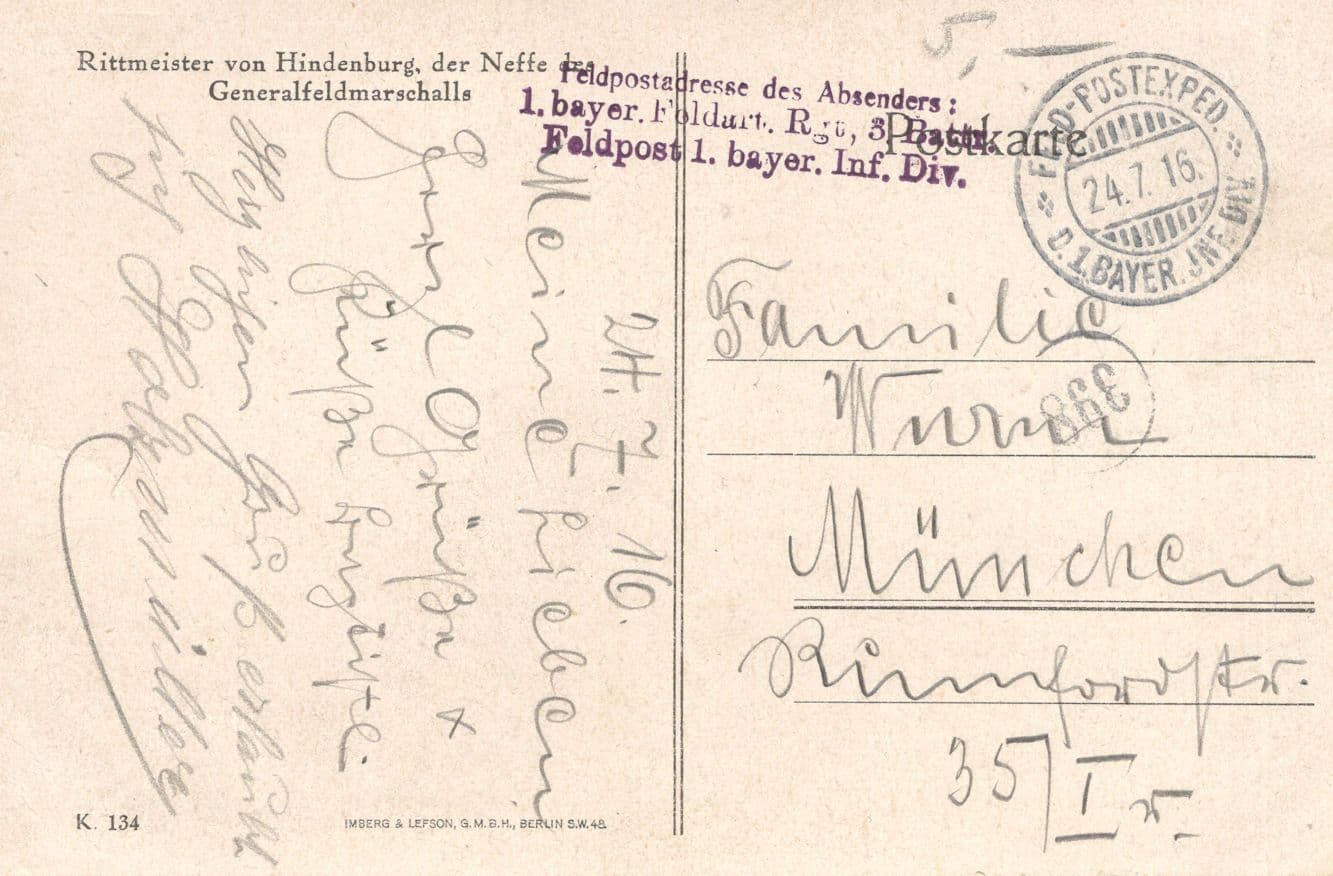 Rittmeister von Hindenburg, der Neffe des
Generalfeldmarschalls
5,
Feldpostadresse des Absenders:
1. bayer. Feldart. Rgt, 3. Battr.
Feldpost 1. bayer. Inf. Div.
Postkarte
FELD-POSTEXPED.
24.7.16.
D. 1. BAYER. INF. DIV.
24. 7. 16.
Meine Lieben
Herzl. Grüße +
Küße
Gruß erlaubt
sich
Familie
Wurm
398
München
Rumfordstr.
35/I r.
K. 134
IMBERG & LEFSON, G.M.B.H., BERLIN S.W.48.